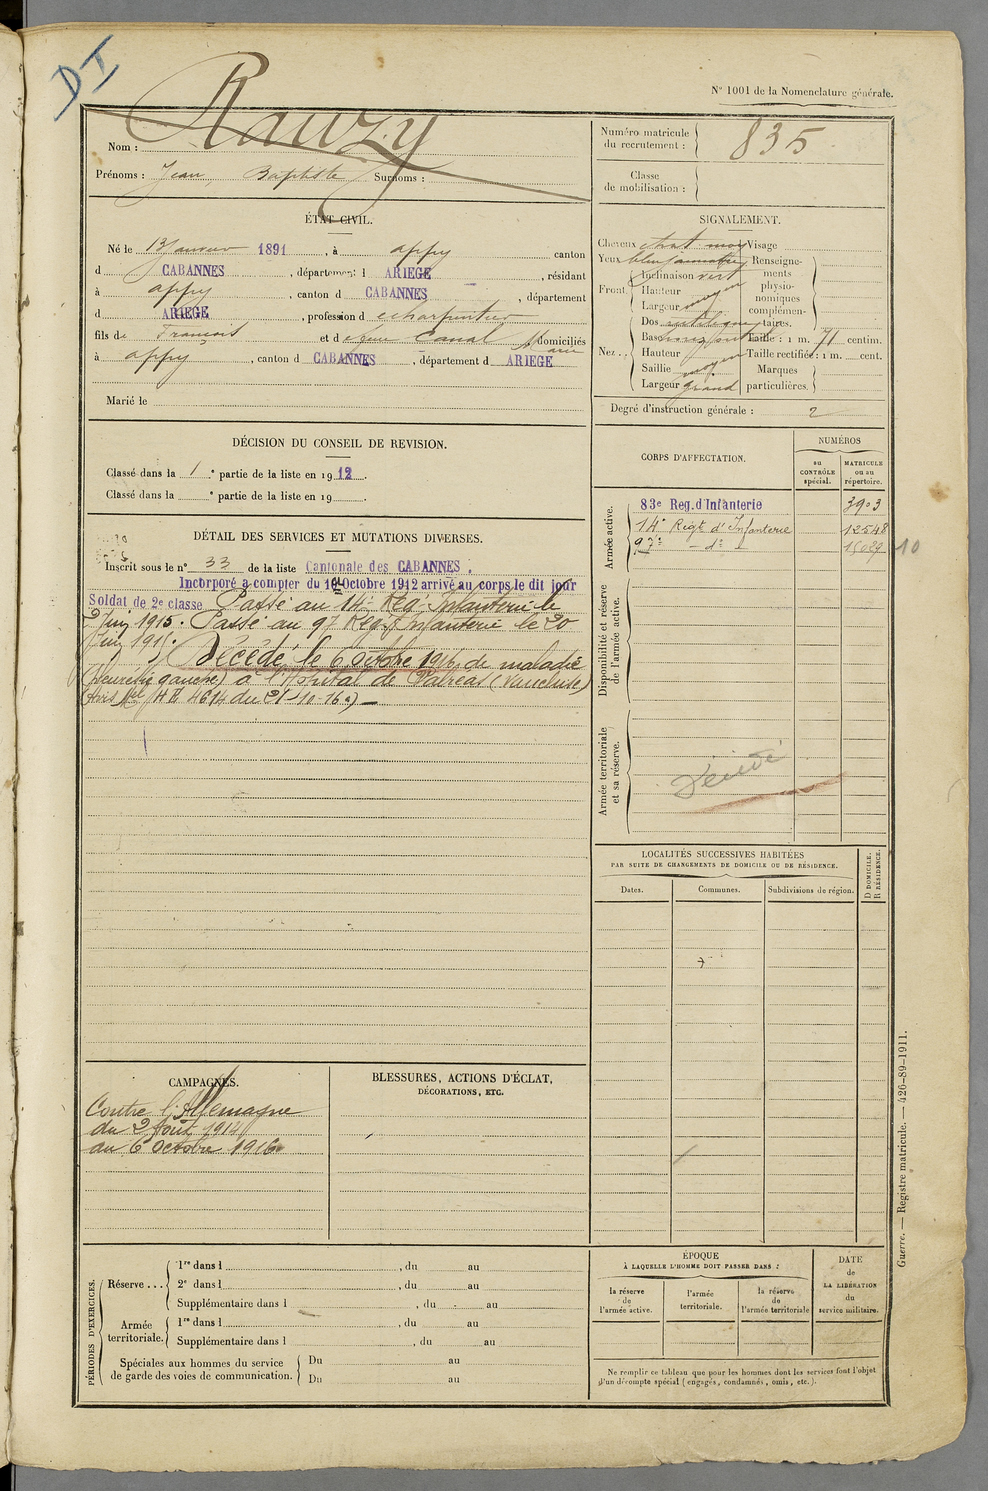 DI
N° 1001 de la Nomenclature générale.
Nom : Rauzy
Prénoms : Jean, Baptiste Surnoms :
Numéro matricule du recrutement : 835
Classe de mobilisation :
ÉTAT CIVIL.
Né le 13 Janvier 1891, à appy canton
d CABANNES, département d ARIEGE, résidant
à appy, canton d CABANNES, département
d ARIEGE, profession d charpentier
fils de François et d Canal domiciliés
à appy, canton d CABANNES, département d ARIEGE
Marié le
SIGNALEMENT.
Cheveux chat moy Visage
Yeux bleu
Renseignements physionomiques complémentaires.
Front. Inclinaison vert
Hauteur moyen
Largeur
Nez.. Dos rectiligne
Base
Hauteur moyen
Saillie
Largeur grand
Taille : 1 m. 71 centim.
Taille rectifiée : 1 m. cent.
Marques particulières.
Degré d'instruction générale : 2
DÉCISION DU CONSEIL DE REVISION.
Classé dans la 1e partie de la liste en 1912.
Classé dans la e partie de la liste en 19
CORPS D'AFFECTATION.
NUMÉROS
au CONTRÔLE spécial.
MATRICULE ou au répertoire.
Armée active.
83e Reg. d'Infanterie 3903
14e Regt d'Infanterie 12548
97e — do — 15039 10
Disponibilité et réserve de l'armée active.
Armée territoriale et sa réserve.
Décédé
DÉTAIL DES SERVICES ET MUTATIONS DIVERSES.
Inscrit sous le n° 33 de la liste Cantonale des CABANNES.
Incorporé à compter du 10 Octobre 1912 arrivé au corps le dit jour
Soldat de 2e classe Passé au 14e Reg. Infanterie le
2 Juin 1915. Passé au 97 Reg. Infanterie le 20
Juin 1916. Décédé le 6 octobre 1916, de maladie
(pleurésie gauche) à l'Hôpital de Valréas (Vaucluse)
(Avis Mel 4614 du 21-10-16)
LOCALITÉS SUCCESSIVES HABITÉES
PAR SUITE DE CHANGEMENTS DE DOMICILE OU DE RÉSIDENCE.
Dates.
Communes.
Subdivisions de région.
D DOMICILE. R RÉSIDENCE.
CAMPAGNES.
Contre l'Allemagne
du 2 Août 1914
au 6 Octobre 1916
BLESSURES, ACTIONS D'ÉCLAT,
DÉCORATIONS, ETC.
PÉRIODES D'EXERCICES.
Réserve...
1re dans l , du au
2e dans l , du au
Supplémentaire dans l , du au
Armée territoriale.
1re dans l , du au
Supplémentaire dans l , du au
Spéciales aux hommes du service de garde des voies de communication.
Du au
Du au
ÉPOQUE
À LAQUELLE L'HOMME DOIT PASSER DANS :
la réserve de l'armée active.
l'armée territoriale.
la réserve de l'armée territoriale
DATE de LA LIBÉRATION du service militaire.
Ne remplir ce tableau que pour les hommes dont les services font l'objet
d'un décompte spécial (engagés, condamnés, omis, etc.).
Guerre. — Registre matricule. — 426-89-1911.